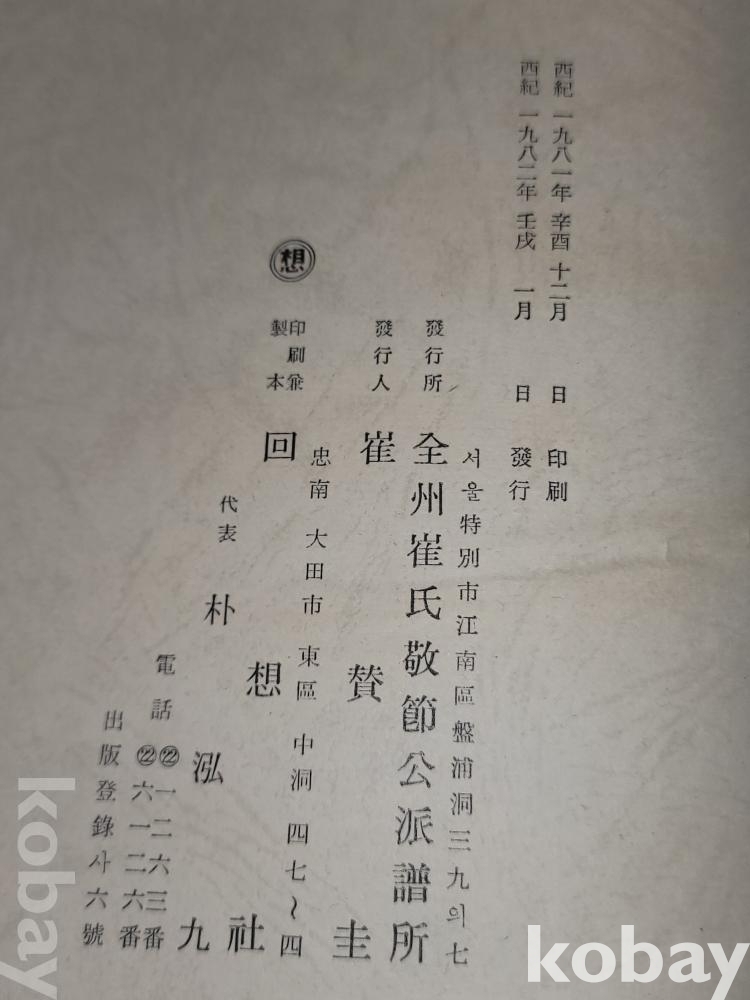 西紀 一九八一年 辛酉 十二月 日 印刷
西紀 一九八二年 壬戌 一月 日 發行
서울特別市江南區盤浦洞三九의七
發行所 全州崔氏敬節公派譜所
發行人 崔賛圭
忠南 大田市 東區 中洞 四七~四
想
印刷兼
製本
回想社
代表 朴泓九
電話 ㉒一二六三番
㉒六一二六番
出版登錄사六號
kobay
kobay